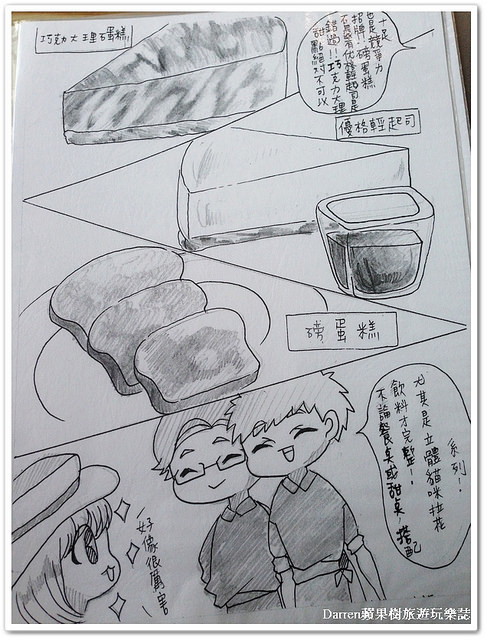 巧克力大理石蛋糕!
甜點絕對不可以
錯過!!巧克力大理
優格輕起司是
招牌!磅蛋糕
也是競爭力
十足
優格輕起司
磅蛋糕
不論餐點或甜點,搭配
飲料才完整!!
尤其是立體貓咪拉花
系列!
好像很厲害
Darren蘋果樹旅遊玩樂誌